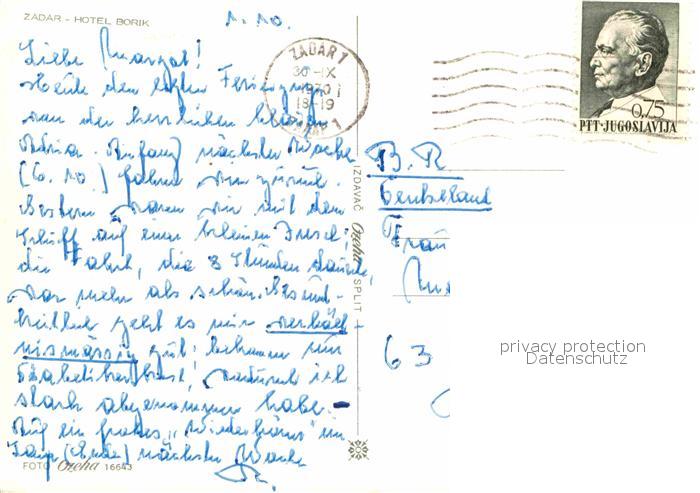 ZADAR - HOTEL BORIK
1. 10.
Liebe Margot!
Heute den letzten Feriengruß
von der herrlichen blauen
Adria. Anfang nächster Woche
(6. 10.) fahren wir zurück.
Gestern waren wir mit dem
Schiff auf einer kleinen Insel;
die Fahrt, die 3 Stunden dauerte,
war mehr als schön. Gesund-
heitlich geht es mir verhält-
nismässig gut; bekomme nur
Diabetikerkost, wodurch ich
stark abgenommen habe.
Auf ein frohes „Wiedersehen" im
(Ende) nächster Woche
FOTO Ozeha 16643
IZDAVAČ Ozeha SPLIT
ZADAR 1
30-IX
1970
18-19
ZADAR 1
0,75
PTT·JUGOSLAVIJA
B. R.
Deutschland
Frau
63
privacy protection
Datenschutz